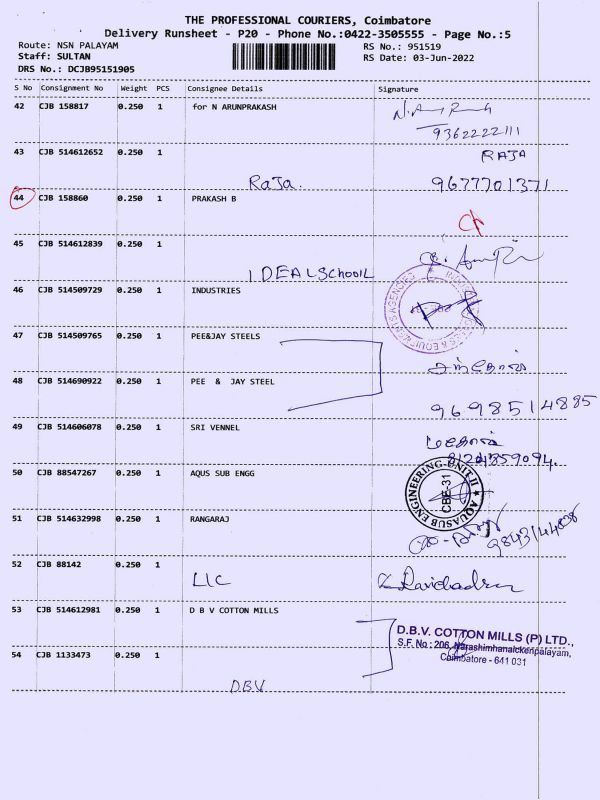 THE PROFESSIONAL COURIERS, Coimbatore
Delivery Runsheet - P20 - Phone No.:0422-3505555 - Page No.:5
Route: NSN PALAYAM RS No.: 951519
Staff: SULTAN RS Date: 03-Jun-2022
DRS No.: DCJB95151905
S No Consignment No Weight PCS Consignee Details Signature
42 CJB 158817 0.250 1 for N ARUNPRAKASH
9362222111
43 CJB 514612652 0.250 1 RAJA
Raja. 9677701371
44 CJB 158860 0.250 1 PRAKASH B
45 CJB 514612839 0.250 1
IDEAL SCHOOL
46 CJB 514509729 0.250 1 INDUSTRIES
47 CJB 514509765 0.250 1 PEE&JAY STEELS
48 CJB 514690922 0.250 1 PEE & JAY STEEL
9698514885
49 CJB 514606078 0.250 1 SRI VENNEL
8124859094.
50 CJB 88547267 0.250 1 AQUS SUB ENGG
AQUASUB ENGINEERING-UNIT-II
CBE-31
51 CJB 514632998 0.250 1 RANGARAJ
52 CJB 88142 0.250 1
LIC
53 CJB 514612981 0.250 1 D B V COTTON MILLS
D.B.V. COTTON MILLS (P) LTD.,
S.F. No : 206, Narashimhanaickenpalayam,
Coimbatore - 641 031
54 CJB 1133473 0.250 1
DBV